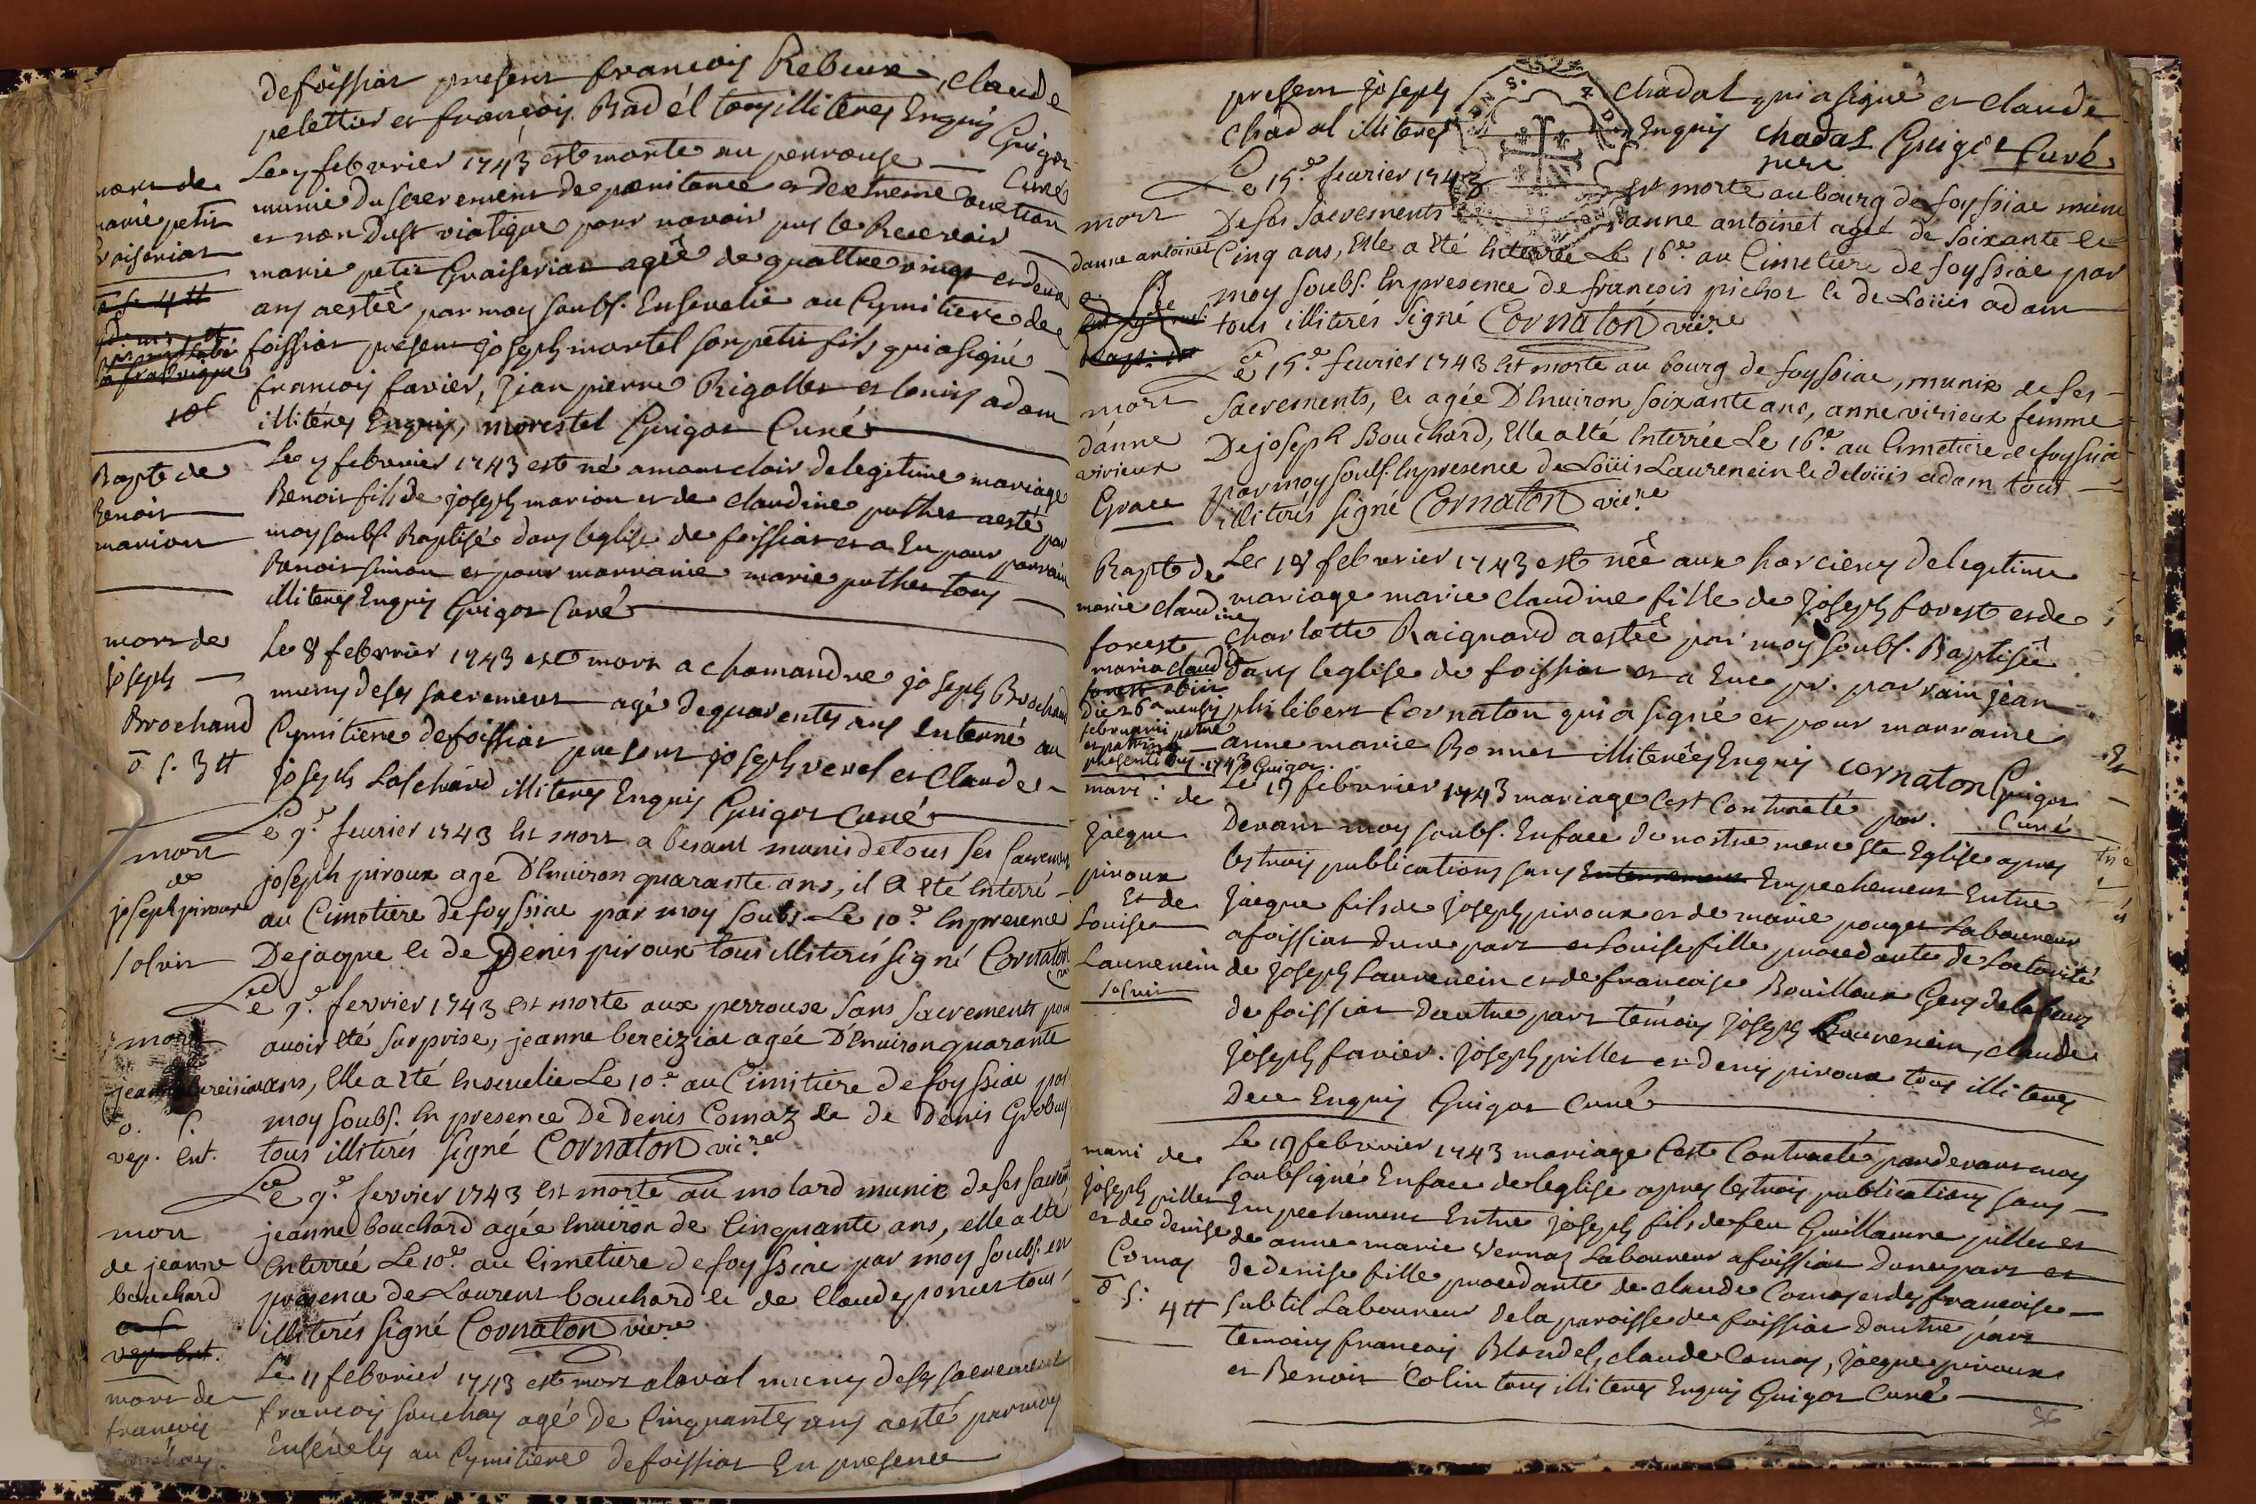 defoissiat present francois Rebeux, claude
pelettier et françois Badél tous illiterés Enquis Guigot
Curé
mort de
marie petit
Graiseriat
Le 7 febvrier 1743 est morte au perrouse
munie du sacrement de pœnitance et de extreme onction
et non du st viatique pour navoir pus le Recevoir
marie petit Graiseriat agée de quattre vingt et deux
ans aestée par moy soubs. Ensevelie au Cymitiere de
foissiat présent joseph martel son petit fils qui a signé
francois favier, jean pierre Rigollet et louis adam
illiterés Enquis, morestel Guigot Curé
Bapte de
Benoit
marion
Le 7 febvrier 1743 est né a montclair de legitime mariage
Benoit fils de joseph marion et de claudine puthet aesté par
moy soubs. Baptisé dans leglise de foissiat et a Eu pour parrain
Benoit simon et pour marraine marie puthet tous
illiterés Enquis Guigot Curé
mort de
joseph
Brochand
o s. 3 tt
Le 8 febvrier 1743 est mort a chamandre joseph Brochand
muny de ses sacrement agé de quarentes ans Enterré au
Cymitiere de foissiat present joseph verel et Claude
joseph Laschard illiterés Enquis Guigot Curé
mort
de
joseph piroux
solvit
Le 9e feurier 1743 Est mort a besant munis de tous ses sacrements
joseph piroux agé D'Enuiron quarante ans, il a été Enterré
au Cimetiere de foyssiac par moy soubs. Le 10e En presence
De jacque & de Denis piroux tous illiterés signé Cornaton
mort
o. s.
vep. Ent.
Le 9e fevrier 1743 Est morte aux perrouse sans sacrements pour
auoir été surprise, jeanne bereiziat agée D'Enuiron quarante
ans, Elle a été Ensevelie Le 10e au Cimitiere de foyssiac par
moy soubs. En presence De denis Comaz & de Denis Grobuy
tous illiterés signé Cornaton vicre
mort
de jeanne
bouchard
Le 9e fevrier 1743 Est morte au molard munie de ses sacrents
jeanne bouchard agée Enuiron de Cinquante ans, elle a été
Enterrée Le 10e au Cimetiere de foyssiac par moy soubs. en
presence de Laurent bouchard & de Claude poncet tous
illiterés signé Cornaton vicre
mort de
francois
Le 11 febvrier 1743 est mort alaval muny de ses sacrement
francois souchay agé de Cinquantes ans aesté par moy
Ensevely au Cymitiere de foissiat En presence
present joseph chadal qui a signé et claude
chadal illiterés Enquis chadal Guigot Curé
mort
danne antoinet
Le 15e feurier 1743 Est morte au bourg de foyssiac munie
De ses sacrements anne antoinet agée de soixante &
Cinq ans, Elle a été Enterrée Le 16e au Cimetiere de foyssiac par
moy soubs. En presence de francois pichot & de Loüis adam
tous illiterés signé Cornaton vicre
mort
d'anne
virieux
Grace
Le 15e feurier 1743 Est morte au bourg de foyssiac, munie de ses
sacrements, & agée D'Enuiron soixante ans, anne virieux femme
De joseph Bouchard, Elle a été Enterrée Le 16e au Cimetiere de foyssiac
par moy soubs. En presence de Loüis Laurencin & de loüis adam tous
illiterés signé Cornaton vicre
Bapte de
marie claudine
forest
maria claud.
forest obiit
die 26a mensis
februarii patre
et patrino
presentibus 1743 Guigot
Le 18 febvrier 1743 est née aux harciers de legitime
mariage marie claudine fille de joseph forest et de
charlotte Raignard aestée par moy soubs. Baptisée
dans leglise de foissiat et a Eue pr. parrain jean
philibert Cornaton qui a signé et pour marraine
anne marie Bonnet illiterées Enquis cornaton Guigot
Curé
mari: de
jacque
piroux
Et de
Louise
Laurencin
solvit
Le 19 febvrier 1743 mariage Cest Contracté par
Devant moy soubs. En face de nostre mere ste Eglise apres
les trois publications sans Empechement Entre
jacque fils de joseph piroux et de marie pouget Laboureur
a foissiat dune part et Louise fille procedante de Lotorité
de joseph Laurencin et de francoise Bouilloux Gens de labeur
de foissiat dautre part témoins joseph Laurencin, claude
joseph favier. joseph pillet et denis piroux tous illiterés
De ce Enquis Guigot Curé
mari de
joseph pillet
et de denise
Comas
o s:
4 tt
Le 19 febvrier 1743 mariage Cest Contracté pardevant moy
soubsigné En face de leglise apres les trois publications sans
Empechement Entre joseph fils de feu Guillaume pillet et
de anne marie vernaz Laboureur a foissiat dune part et
de denise fille procedante de claude Comas et de francoise
subtil Laboureur de la paroisse de foissiat dautre part
temoins francois Blondel, claude Comas, jacque piroux
et Benoit Colin tous illiterés Enquis Guigot Curé